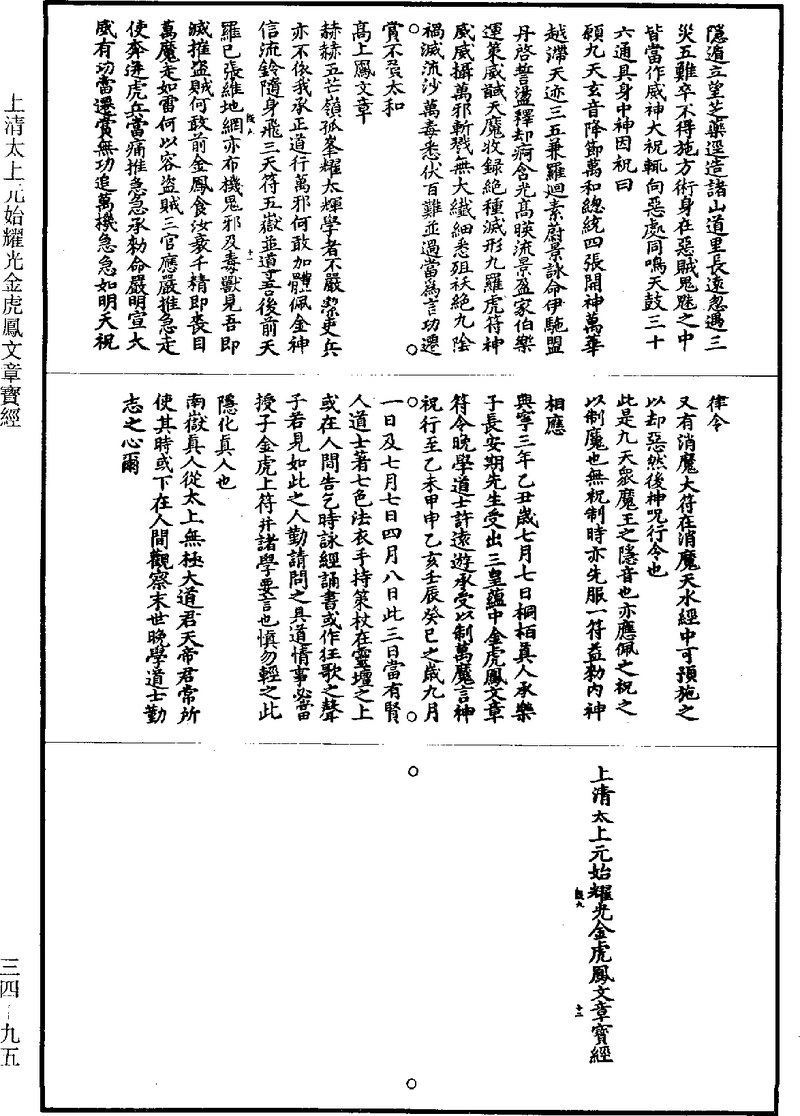 隱遁立望芝藥逕造諸山道里長遠忽遇三
災五難卒不得施方術身在惡賊鬼魅之中
皆當作威神大祝輒向惡處同鳴天鼓三十
六通具身中神因祝曰
願九天玄音降節萬和總統四張開神萬華
越滯天迹三五兼羅迴素蔚景詠命伊馳盟
丹啓誓盪釋却痾含光高暎流景盈家伯樂
運策威馘天魔收録絶種滅形九羅虎符神
威威攝萬邪斬戮無大纖細悉殂袄絶九陰
禍滅流沙萬毒悉伏百難並過當爲言功遷
賞不負太和
高上鳳文章
赫赫五芒嶺孤峯耀太輝學者不嚴潔吏兵
亦不依我承正道行萬邪何敢加體佩金神
信流鈴隨身飛三天符五嶽並導吾後前天
羅已張維地網亦布機鬼邪及毒獸見吾即
滅摧盜賊何敢前金鳳食汝衰千精即喪目
萬魔走如雷何以容盜賊三官應嚴推急走
使奔逰虎兵當痛推急急承勑命嚴明宣大
威有功當還賞無功追萬機急急如明天祝
律令
又有消魔大符在消魔天水經中可預施之
以却惡然後神呪行令也
此是九天衆魔王之隱音也亦應佩之祝之
以制魔也無祝制時亦先服一符益勑內神
相應
興寧三年乙丑歲七月七日桐栢真人承樂
子長安期先生受出三皇蘊中金虎鳳文章
符令晚學道士許遠遊承受以制萬魔言神
祝行至乙未甲申乙亥壬辰癸巳之歲九月
一日及七月七日四月八日此三日當有賢
人道士著七色法衣手持策杖在靈壇之上
或在人間告乞時詠經誦書或作狂歌之聲
子若見如此之人勤請問之具道情事必當
授子金虎上符并諸學要言也慎勿輕之此
隱化真人也
南嶽真人從太上無極大道君天帝君常所
使其時或下在人間觀察末世晚學道士勤
志之心爾
上清太上元始耀光金虎鳳文章寶經
上清太上元始耀光金虎鳳文章寶經
三四—九五